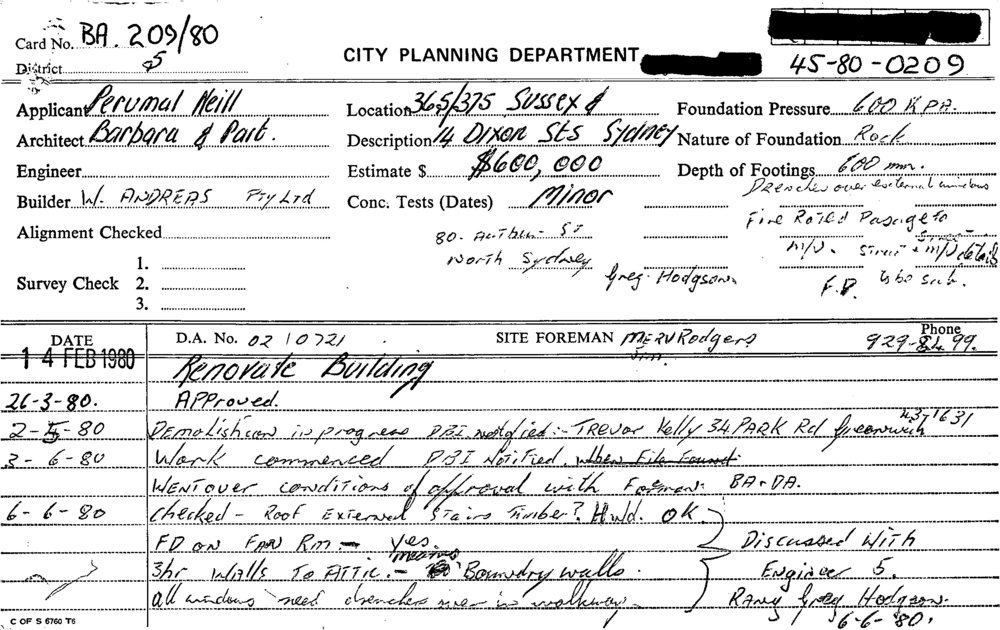 Card No. BA. 209/80
District 5
CITY PLANNING DEPARTMENT
45-80-0209
Applicant Perumal Neill
Architect Barbara & Part.
Engineer
Builder W. ANDREAS Pty Ltd
Alignment Checked
Survey Check 1.
2.
3.
Location 365/375 Sussex &
Description 14 Dixon Sts Sydney
Estimate $ $600,000
Conc. Tests (Dates) Minor
80. Arthur St
North Sydney
Greg. Hodgson.
Foundation Pressure 600 KPA.
Nature of Foundation Rock
Depth of Footings 600 mm.
Drencher over external windows
Fire Rated Passage to
M/V. Struct + M/V details
F.P. to be sub.
DATE
D.A. No. 02 10721
SITE FOREMAN MERV Rodgers
Jim
Phone
929-8499.
14 FEB 1980 Renovate Building
26-3-80. APProved.
2-5-80 DEMolishion in progress DBI notified:- TREVOR Kelly 34 PARK Rd Greenwich 4371631
3-6-80 Work commenced DBI Notified. when File Found
WENT over conditions of approval with Foreman. BA-DA.
6-6-80 Checked - Roof External Stairs Timber? Hwd. OK.
FD ON FAN Rm. - yes.
3hr Walls To ATTIC. - means Boundry walls.
all windows need drenchers over in walkway.
Discussed With
Engineer 5.
Greg Hodgson.
6-6-80.
C OF S 6760 T6